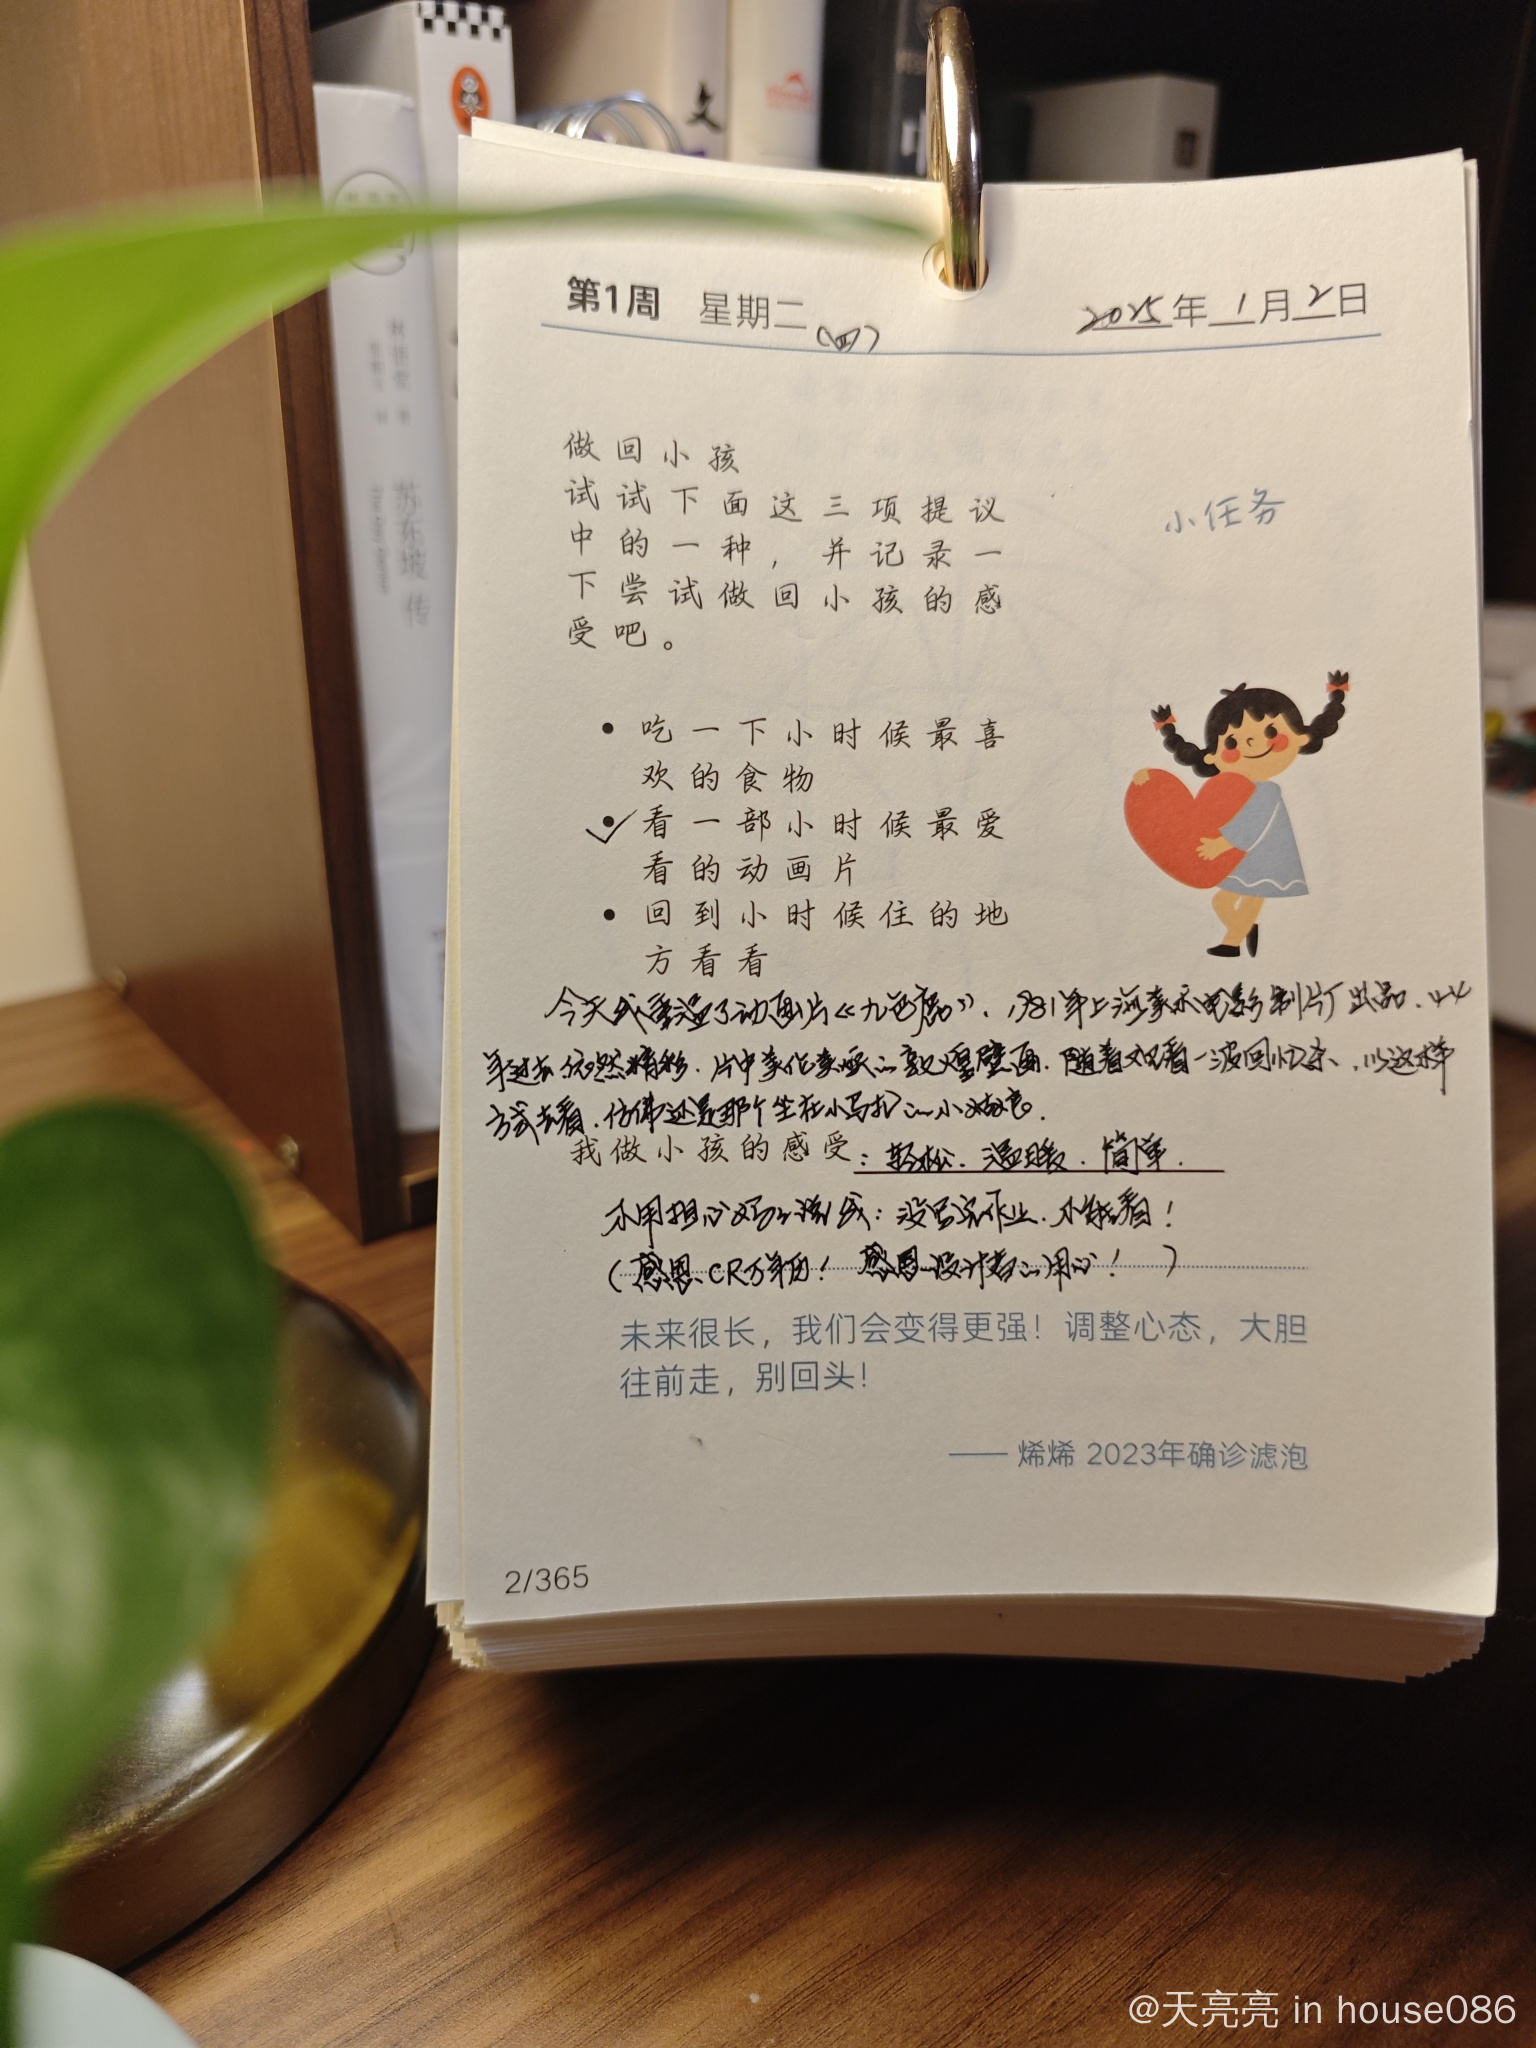 文
苏东坡传
第1周 星期二 (四) 2025年1月2日
做回小孩
试试下面这三项提议
中的一种，并记录一
下尝试做回小孩的感
受吧。
小任务
吃一下小时候最喜
欢的食物
看一部小时候最爱
看的动画片
回到小时候住的地
方看看
今天我重温了动画片《九色鹿》，1981年上海美术电影制片厂出品，44
年过去依然精彩，片中美化美唤的敦煌壁画，随着观看一波回忆杀，以这样
方式去看，仿佛还是那个坐在小马扎的小姑娘。
我做小孩的感受：轻松、温暖、简单。
不用担心妈妈说我：没写完作业，不能看！
（感恩CR万年团！感恩设计者的用心！）
未来很长，我们会变得更强！调整心态，大胆
往前走，别回头！
—— 烯烯 2023年确诊滤泡
2/365
@天亮亮 in house086